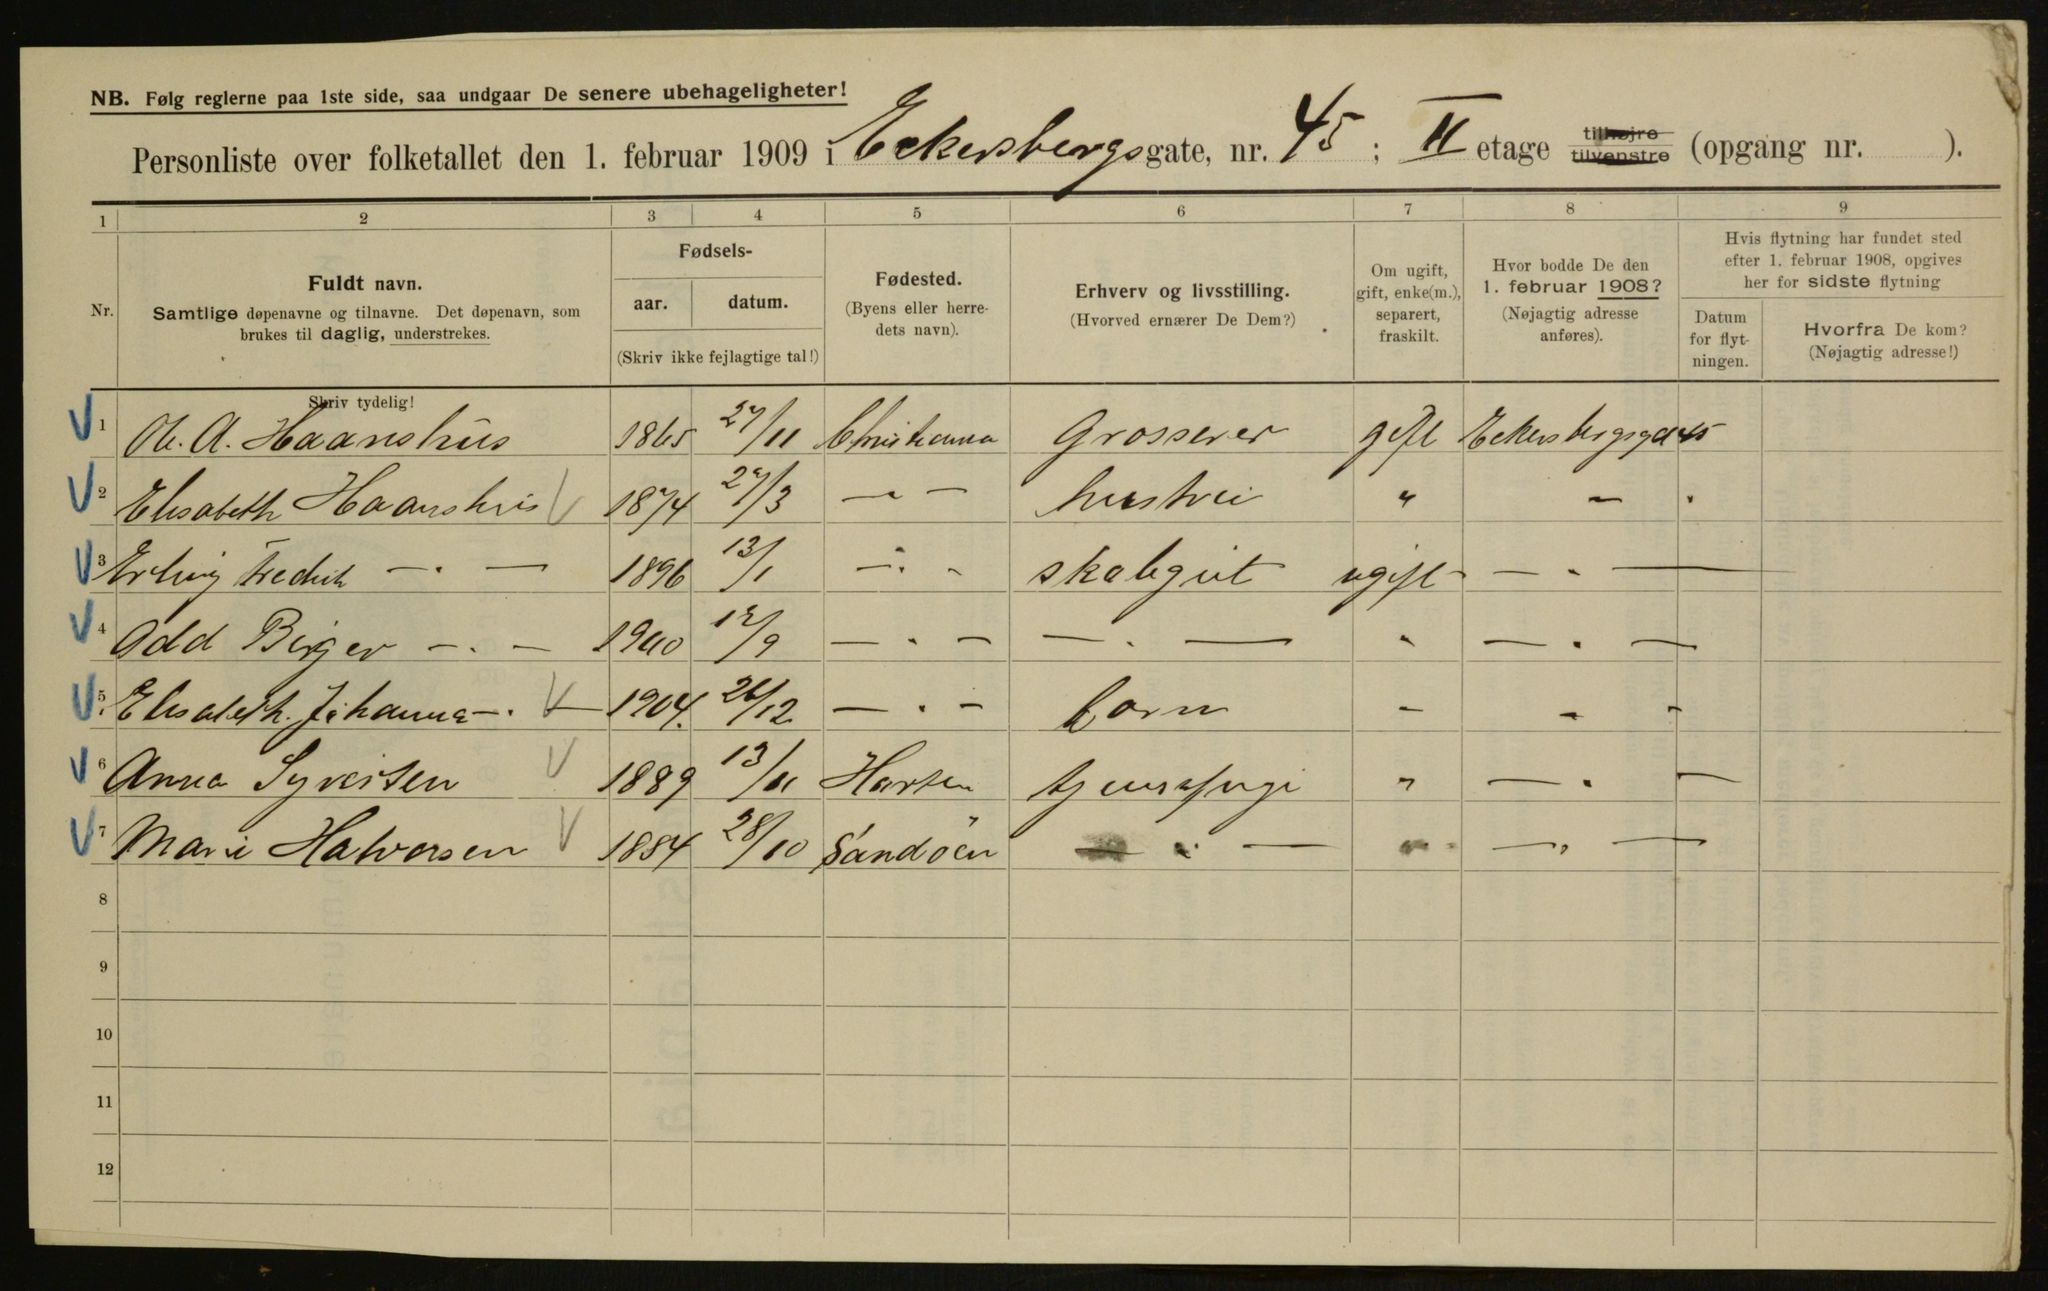 NB. Følg reglerne paa 1ste side, saa undgaar De senere ubehageligheter!
Personliste over folketallet den 1. februar 1909 i Eckersbergsgate, nr. 45; II etage tilhøjre tilvenstre (opgang nr. ).
1 2 3 4 5 6 7 8 9
Nr.
Fuldt navn.
Samtlige døpenavne og tilnavne. Det døpenavn, som
brukes til daglig, understrekes.
Skriv tydelig!
Fødsels-
aar. datum.
(Skriv ikke fejlagtige tal!)
Fødested.
(Byens eller herre-
dets navn).
Erhverv og livsstilling.
(Hvorved ernærer De Dem?)
Om ugift,
gift, enke(m.),
separert,
fraskilt.
Hvor bodde De den
1. februar 1908?
(Nøjagtig adresse
anføres).
Hvis flytning har fundet sted
efter 1. februar 1908, opgives
her for sidste flytning
Datum
for flyt-
ningen.
Hvorfra De kom?
(Nøjagtig adresse!)
1 A. Haanshus 1865 27/11 Christiania Grosserer gift Eckersbergsgd 45
2 Elisabeth Haanshus 1874 27/3 — " — hustru " — " —
3 Erling Fredrik — " — 1896 13/1 — " — skolegut ugift — " —
4 Odd Birger — " — 1900 12/9 — " — — " — " — " —
5 Elisabeth Johanna — " — 1904 26/12 — " — barn " — " —
6 Anna Syversen 1889 13/11 Horten " — " —
7 Marie Halvorsen 1884 28/10 Sandöen — " — " — " —
8
9
10
11
12